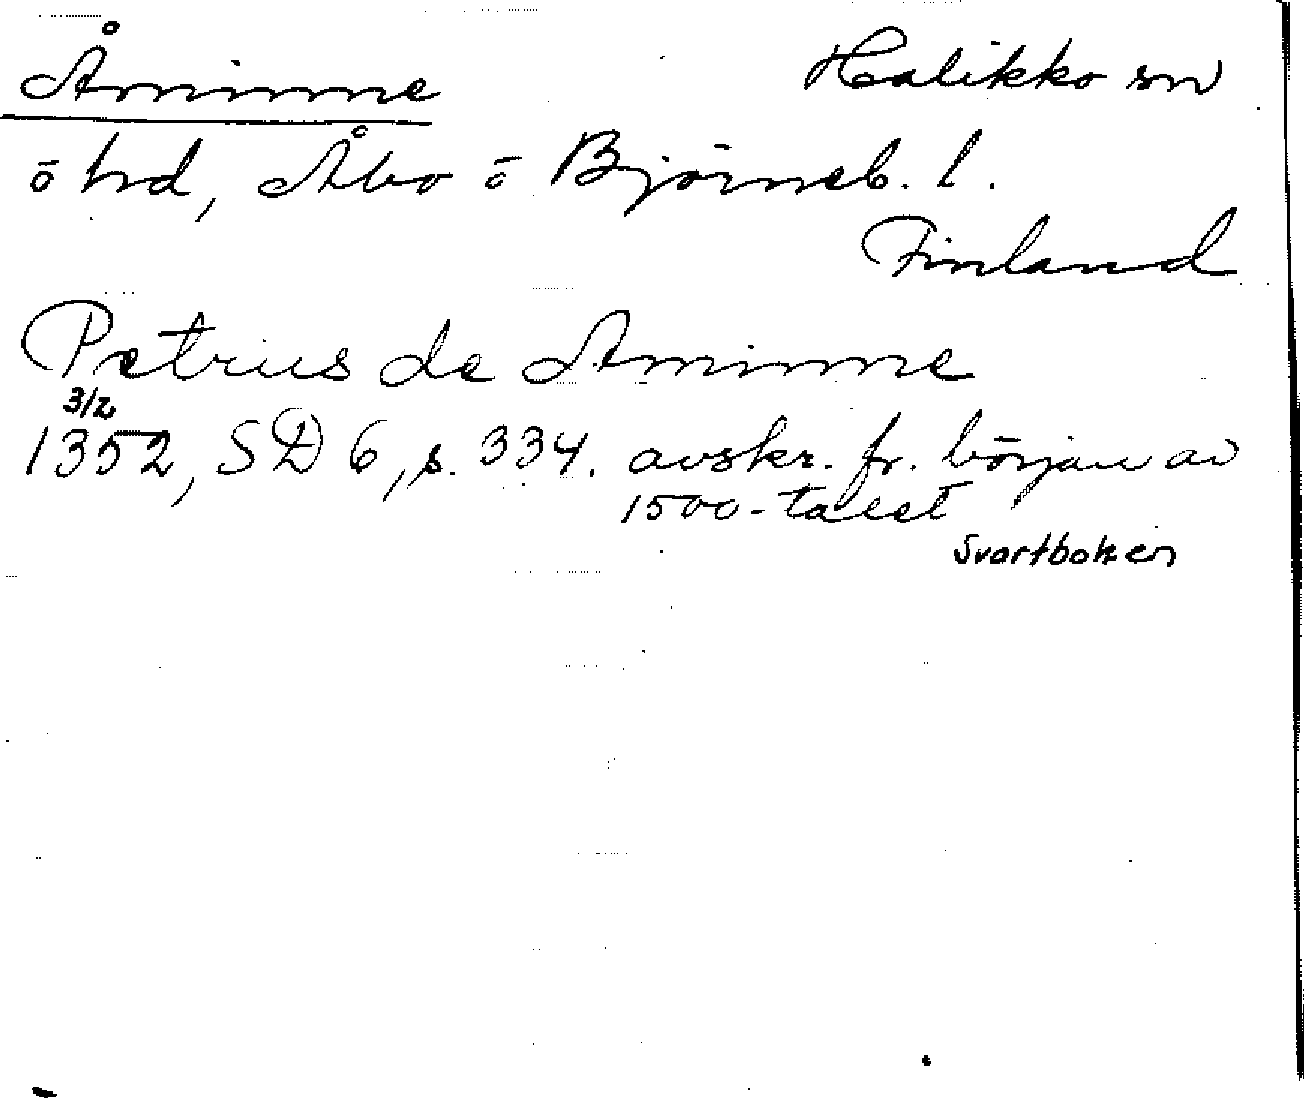 Åminne Halikko sn
ō hd, Åbo ō Björneb. l.
Finland
Petrus de Aminne
3/2
1352, SD 6, s. 334. avskr. fr. början av
1500-talet
Svartboken